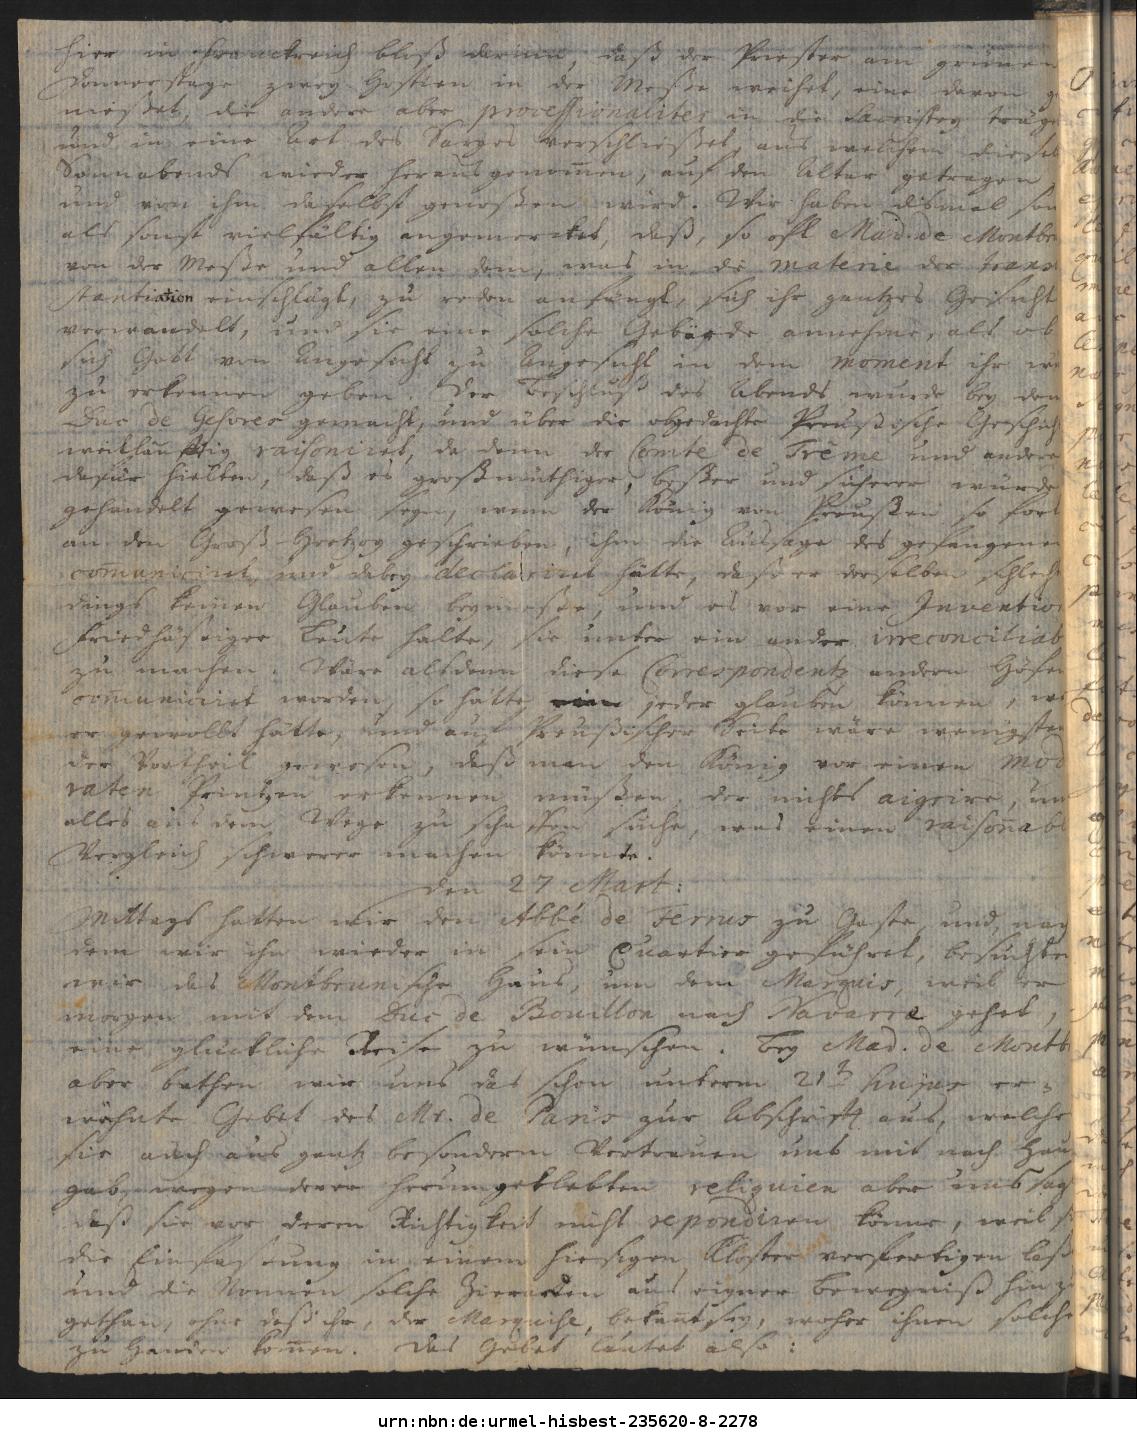 hier in Franckreich bloß darinn, daß der Priester am grünen
Donnerstage zwey Hostien in der Meße weihet, eine davon
nießet, die andere aber processionaliter in die Sacristey träge
und in eine Art des Sarges verschließet, aus welchem dieselb
Sonnabends wieder herausgenom̄en, auf den Altar getragen
und von ihm daselbst genoßen wird. Wir haben dismal
als sonst vielfältig angemercket, daß, so oft Mad. de Montbr
von der Meße und allen dem, was in die materie der trans
stantiation einschlägt, zu reden anfängt, sich ihr gantzes Gesicht
verwandelt, und sie eine solche Gebärde annehme, als ob
sich Gott von Angesicht zu Angesicht in dem moment ihr
zu erkennen geben. Der Beschluß des Abends wurde bey dem
Duc de Gesvres gemacht, und über die obgedachte Preußische Geschich
weitläufftig raisoniret, da denn der Comte de Trême und andere
dafür hielten, daß es großmüthiger, beßer und sicherer würde
gehandelt gewesen seyn, wenn der König von Preußen so fort
an den Groß-Hertzog geschrieben, ihm die Aussage des gefangenen
com̄uniciret, und dabey declariret hätte, daß er derselben schlech
dings keinen Glauben beymeße, und es vor eine Invention
friedhäßiger Leute halte, sie unter ein ander irreconciliab
zu machen. Wäre alsdenn diese Correspondentz andern Höfen
com̄uniciret worden, so hätte jeder glauben können,
er gewollt hätte, und auf Preußischer Seite wäre wenigsten
der Vortheil gewesen, daß man den König vor einen mod
raten Printzen erkennen müßen, der nichts aigrire, un
alles aus dem Wege zu schaffen suche, was einen raison̄abl
Vergleich schwerer machen könnte.
den 27 Mart:
Mittags hatten wir den Abbé de Ternus zu Gaste, und, nach
dem wir ihn wieder in sein Quartier geführet, besuchten
wir das Montbrunische Haus, um dem Marquis, weil er
morgen mit dem Duc de Bouillon nach Navarre gehet,
eine glückliche Reise zu wünschen. Bey Mad. de Montb
aber bathen wir uns das schon unterm 21t hujus er-
wähnte Gebet des Mr. de Paris zur Abschrift aus, welche
sie auch aus gantz besonderm Vertrauen uns mit nach Hau
gab, wegen derer herumgeklebten reliquien aber uns sag
daß sie vor deren Richtigkeit nicht repondiren könne, weil
die Einfaßung in einem hiesigen Kloster verfertigen laß
und die Nonnen solche Zierathen aus eigner Bewegniß hinzu
gethan, ohne daß ihr, der Marquise, bekan̄t sey, woher ihnen solche
zu Handen kom̄en. Das Gebet lautet also:
urn:nbn:de:urmel-hisbest-235620-8-2278